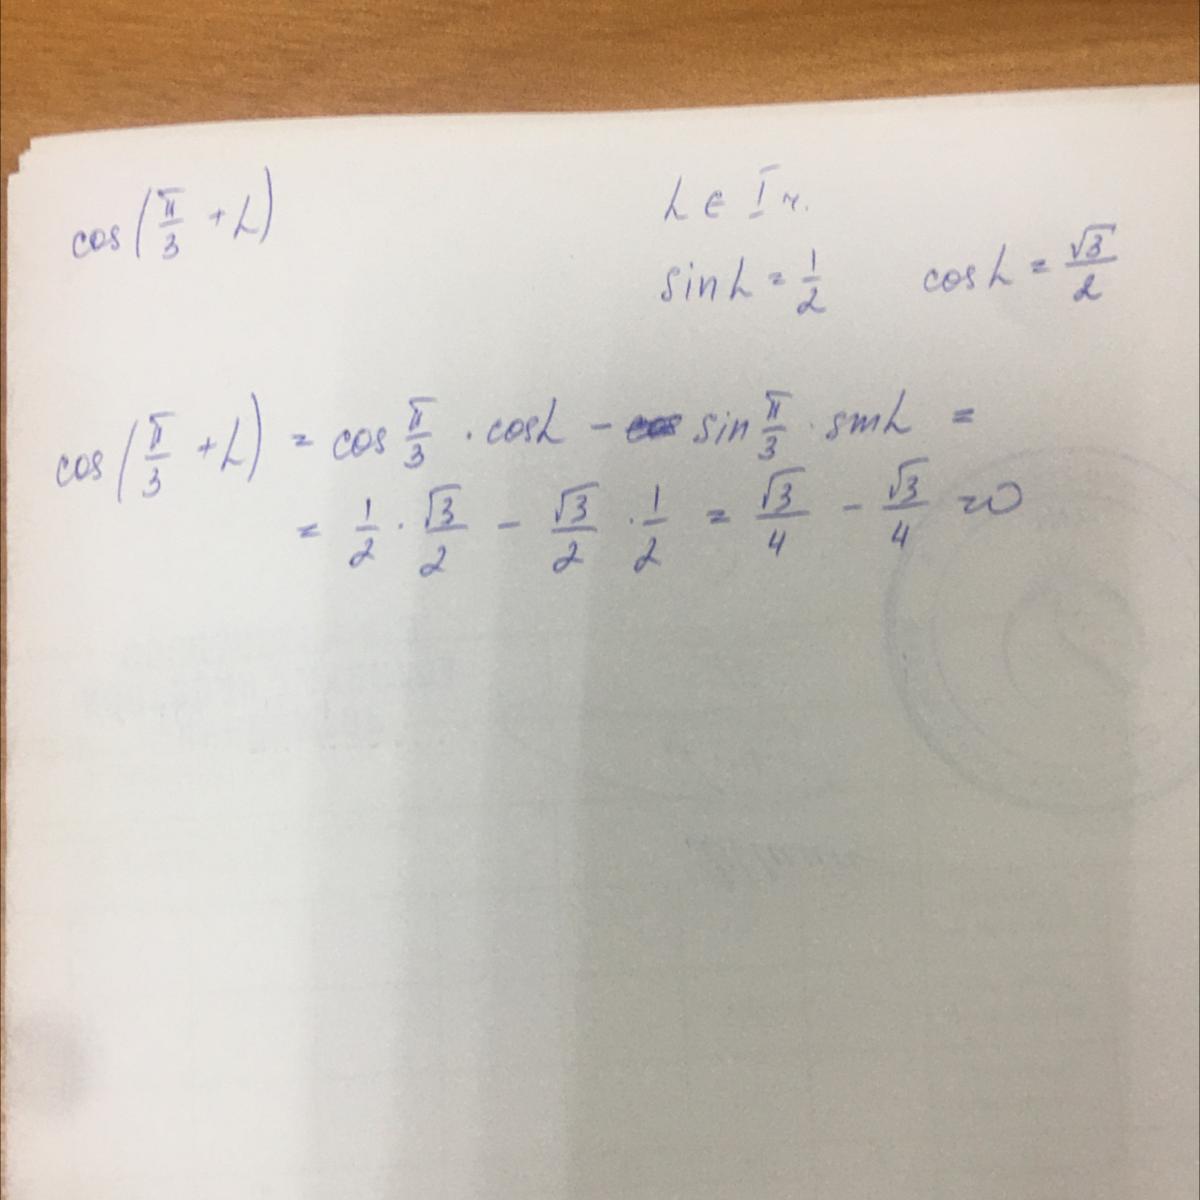 cos(π/3 + L)
L ∈ I ч.
sin L = 1/2 cos L = √3/2
cos(π/3 + L) = cos π/3 · cos L − sin π/3 · sin L =
= 1/2 · √3/2 − √3/2 · 1/2 = √3/4 − √3/4 = 0